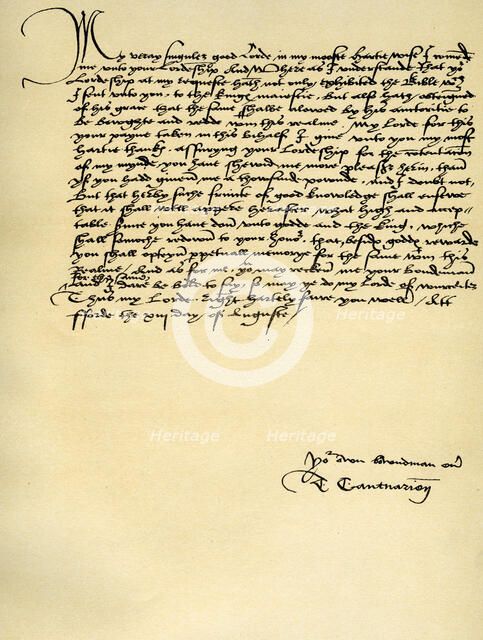 My veray singuler good Lorde, in my mooste hartie wise I comend
me unto your Lordeship. And Where as I understande that yo
Lordeship at my requeste hath not only exhibited the Bible which
I sent unto you, to the Kinges maiestie, but also hath obteigned
of his grace that the same shalbe alowed by his auctoritie to
be bowghte and redde within this realme, My Lorde for this
your payne taken in this bihalf, I give unto you my most
hartie thanks, assuryng your Lordeship for the contentacion
of my mynde you have shewed me more pleasr herin, than
if you hadd given me a thousand pownde, and I doubt not,
But that herby suche fruicte of good knowledge shall ensewe
that it shall well appere hereafter what high and accep-
table service you have don unto godde and the King, whiche
shall somoche redown to your honor, that, beside godds rewarde
you shall opteyn ppetuall memorye for the same within this
Realme. And as for me, yo may reckon me your Bondeman
for the same,
And I dare be bold to say, so may ye do my Lorde of wurceter
Thus my Lord, Right hartely fare you well, Att
fforde the xiij day of Auguste
Yor own bowndman ever
T Cantuarien
Heritage
Heritage
Heritage
Heritage